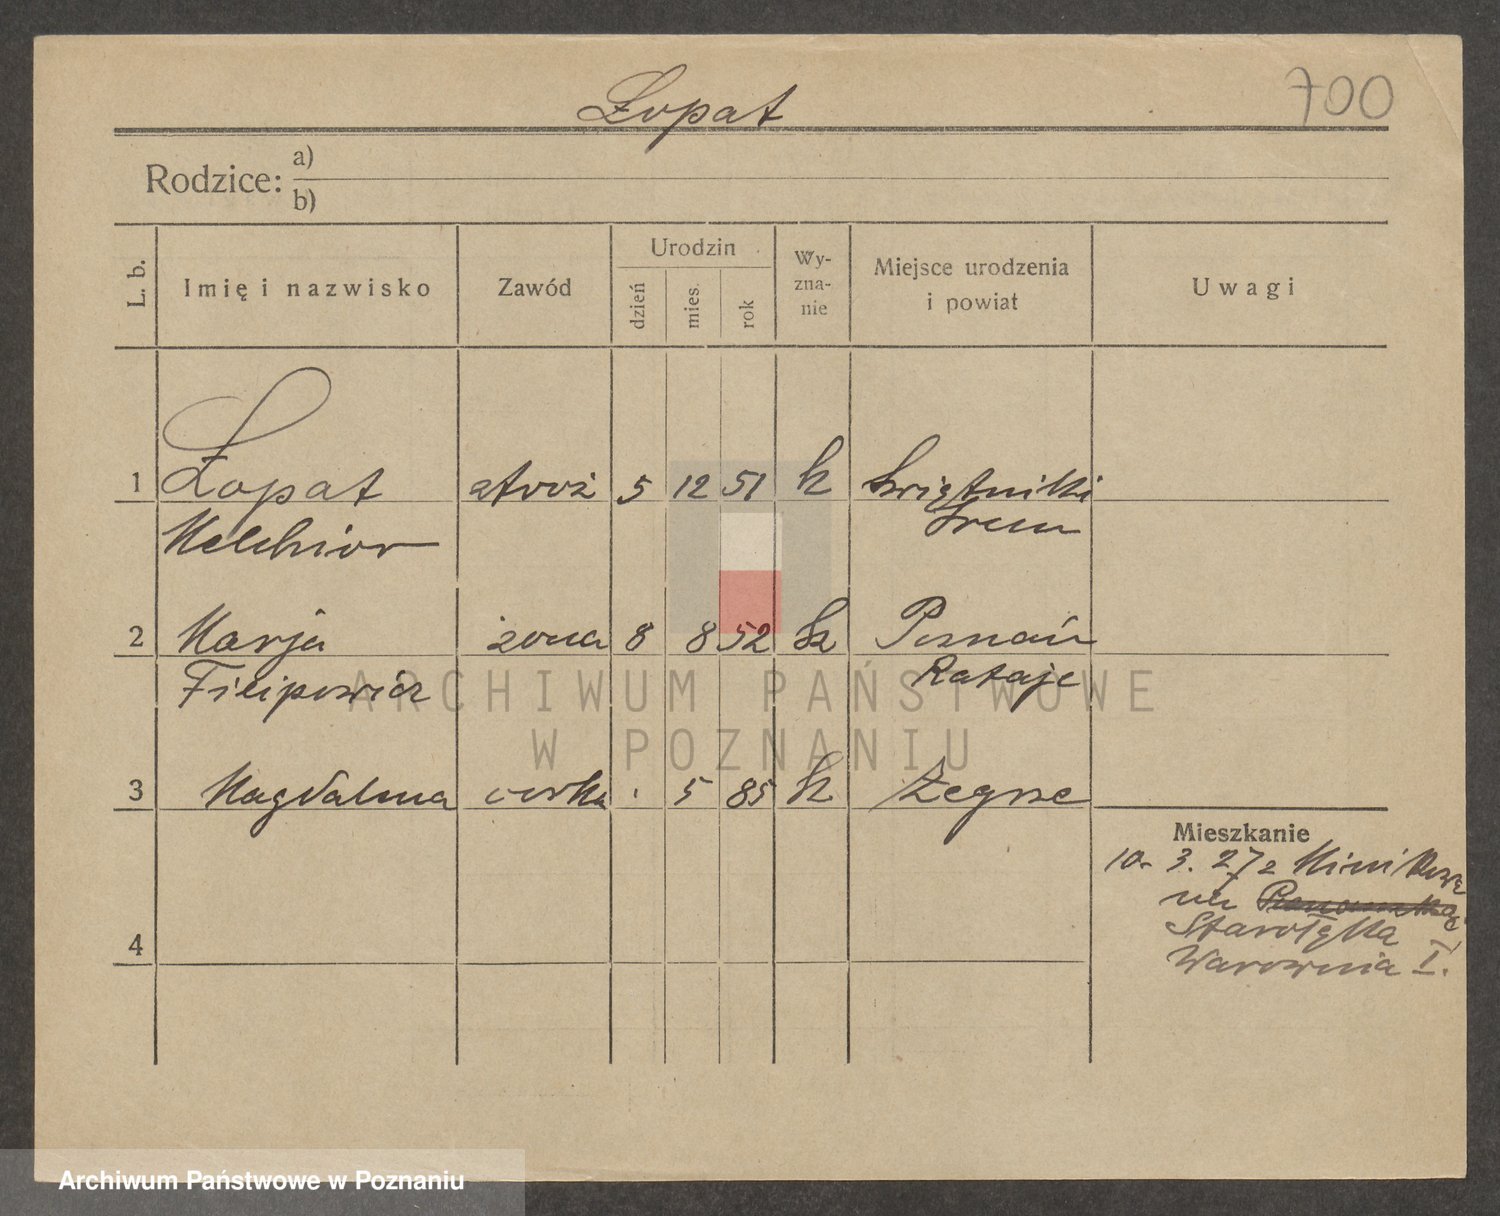 Łopat
700
Rodzice: a)
b)
L. b. Imię i nazwisko Zawód Urodzin dzień mies. rok Wy-zna-nie Miejsce urodzenia i powiat Uwagi
1 Łopat stróż 5 12 51 k Świątniki
Melchior Śrem
2 Marja żona 8 8 52 k Poznań
Filipowicz Rataje
3 Magdalena córka . 5 85 k Żegrze
Mieszkanie
10. 3. 27 z Minikowa
ul.
Starołęka
4
Warownia I.
ARCHIWUM PAŃSTWOWE
W POZNANIU
Archiwum Państwowe w Poznaniu